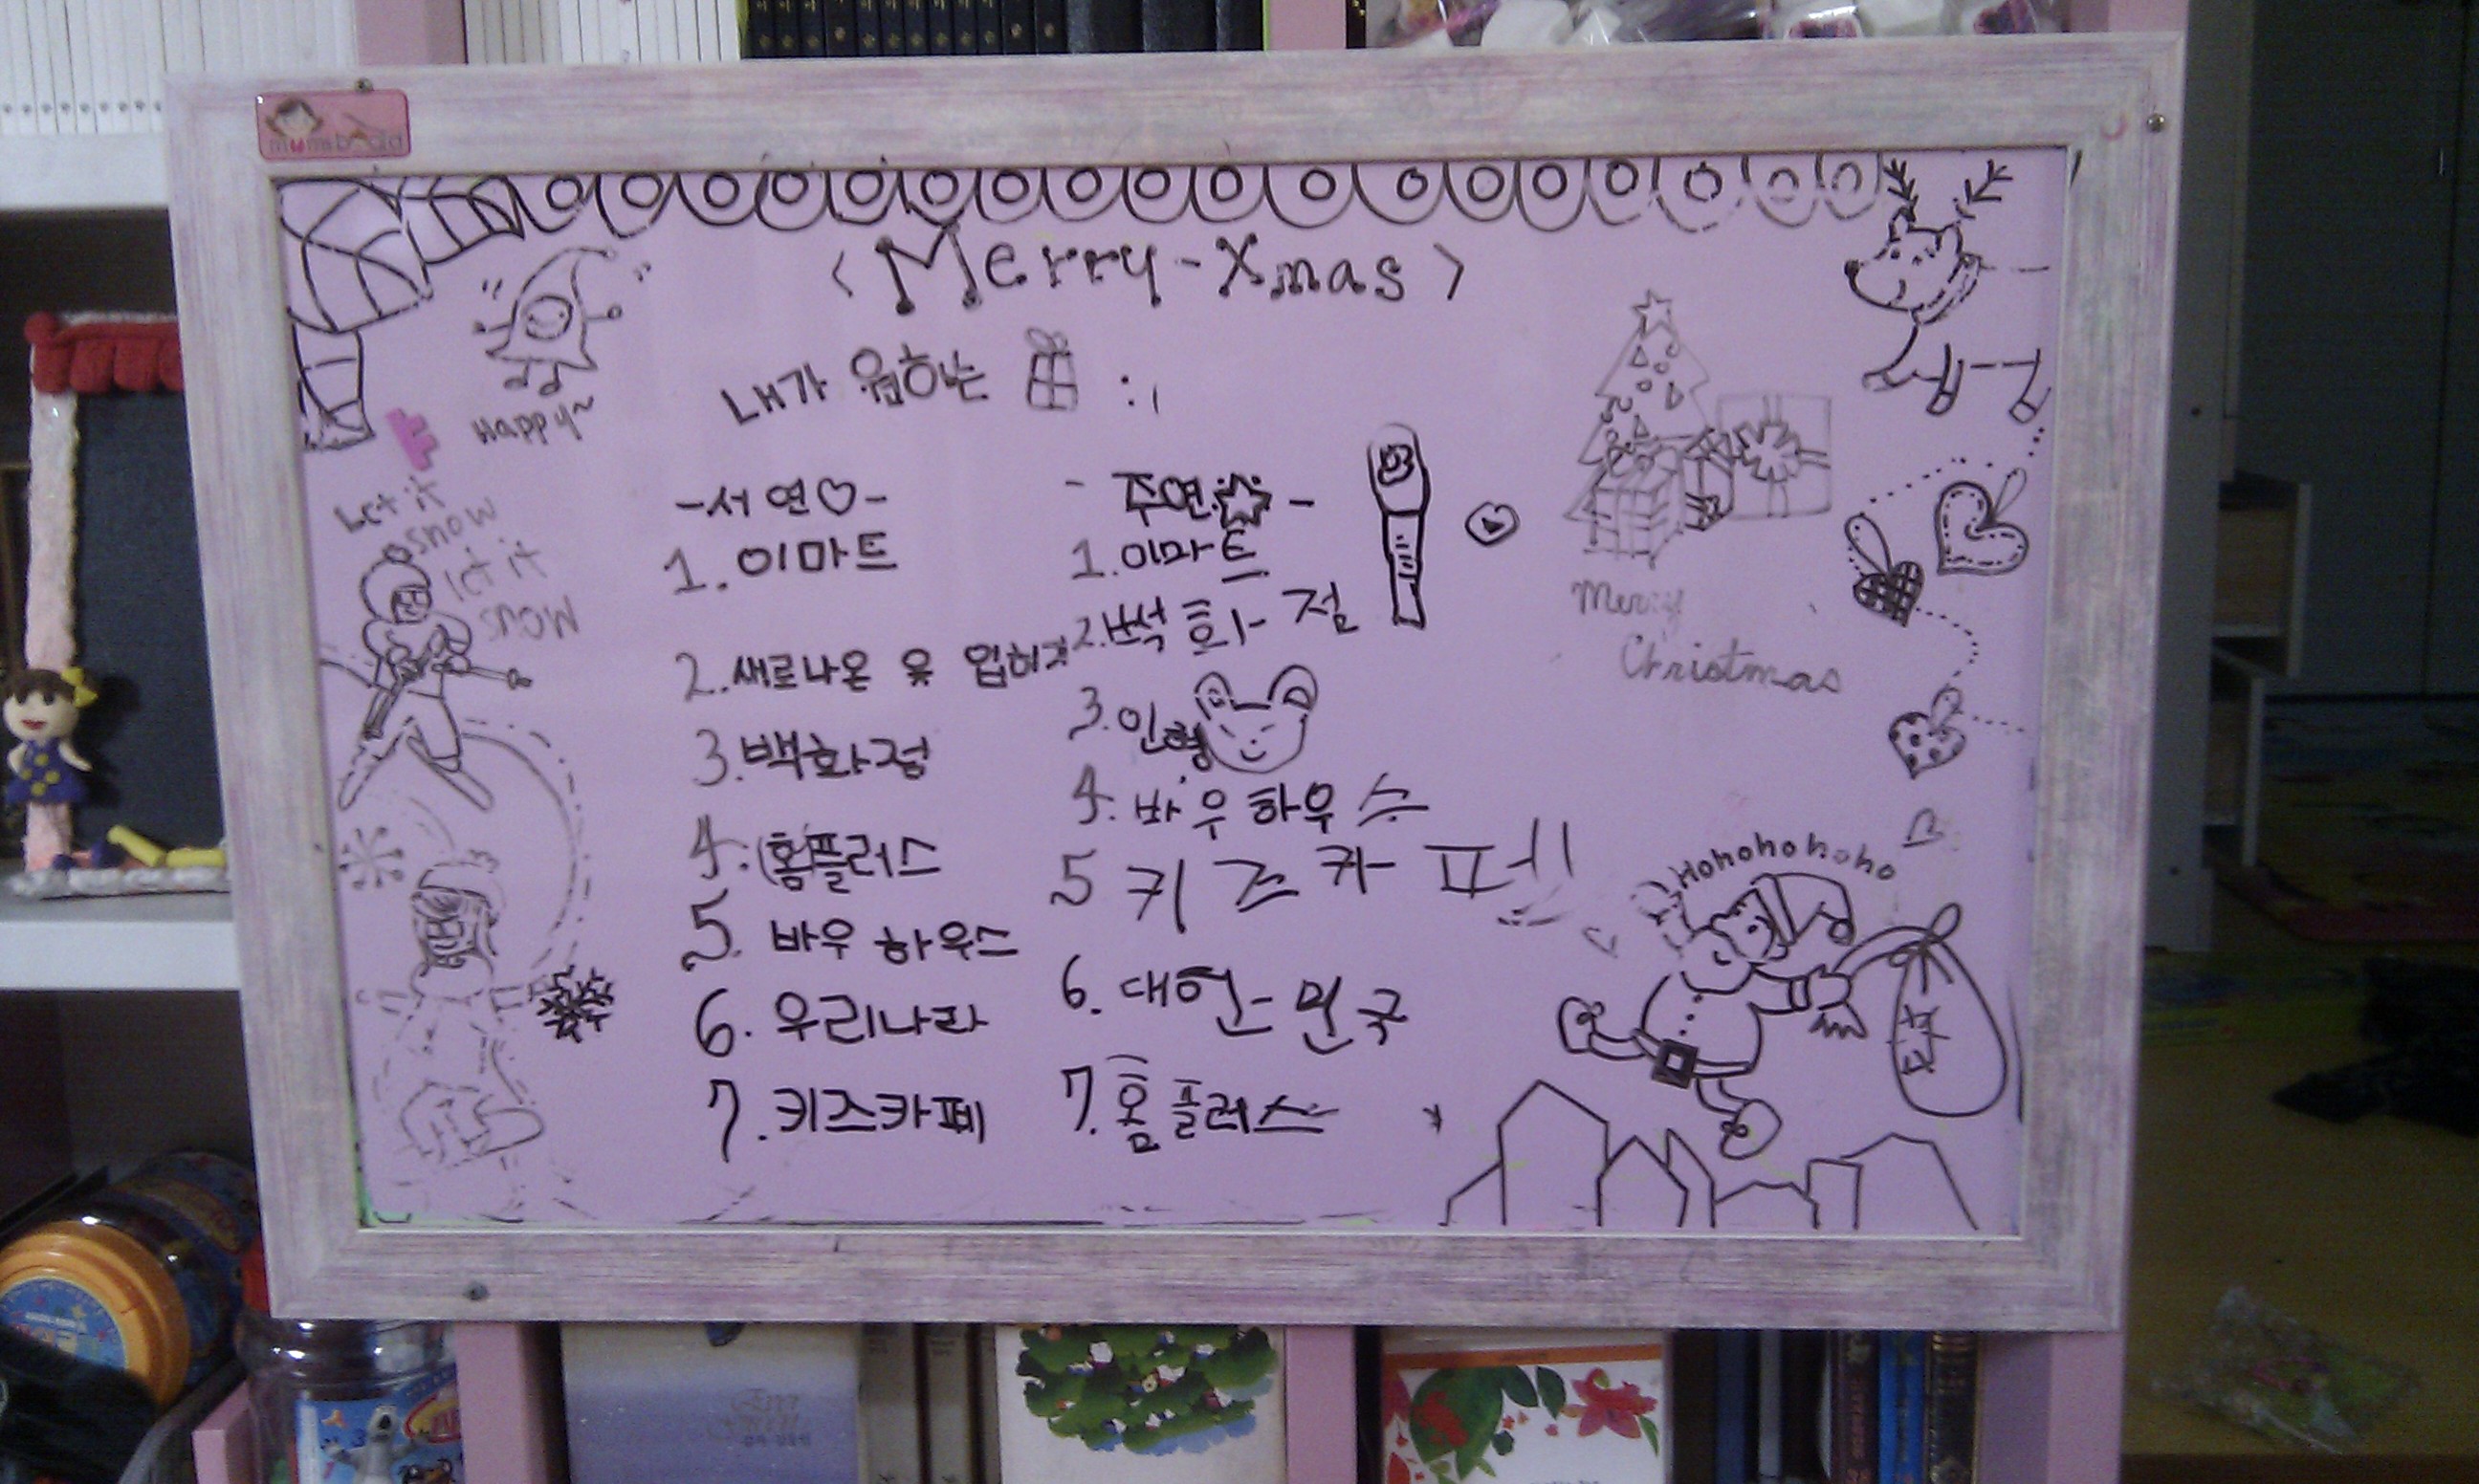 mumibada
<Merry-Xmas>
Happy~
내가 원하는 :
Let it
snow
let it
snow
-서연♡-
1. 이마트
2. 새로나온 옷 입히기
3. 백화점
4. 홈플러스
5. 바우하우스
6. 우리나라
7. 키즈카페
- 주연☆ -
1. 이마트
2. 백화점
3. 인형
4. 바우하우스
5 키즈카페
6. 대한민국
7. 홈플러스
Merry
Christmas
Hohohohoho